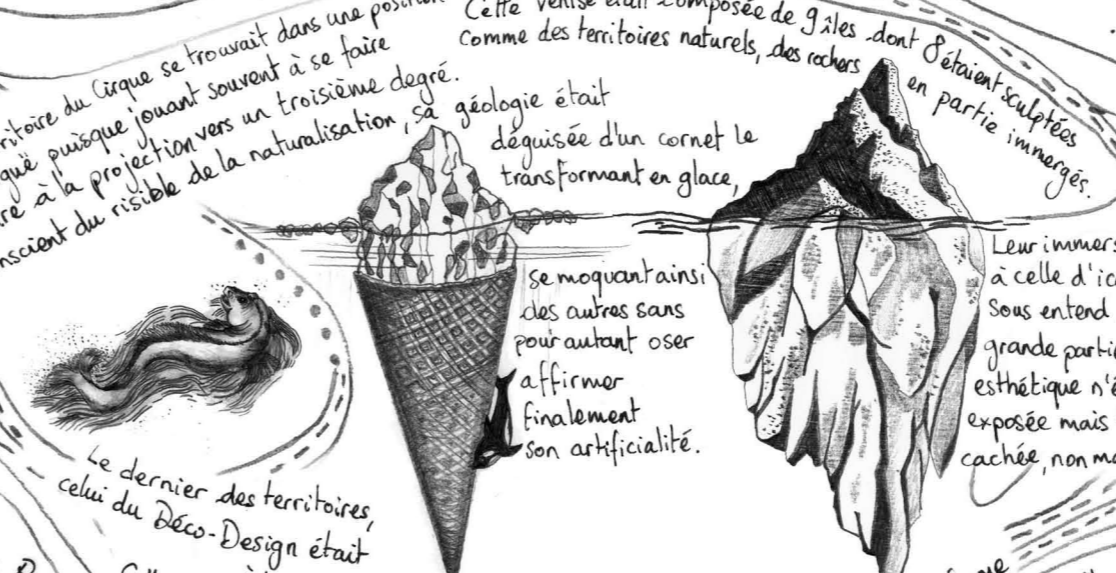 ritoire du Cirque se trouvait dans une position
guë puisque jouant souvent à se faire
re à la projection vers un troisième degré.
nscient du risible de la naturalisation, sa géologie était
déguisée d'un cornet le
transformant en glace,
se moquant ainsi
des autres sans
pour autant oser
affirmer
finalement
son artificialité.
Cette Venise était composée de 9 îles dont 8 étaient sculptées
Comme des territoires naturels, des rochers en partie immergés.
Leur immers
à celle d'ic
sous entend
grande parti
esthétique n'é
exposée mais
cachée, non ma
Le dernier des territoires,
celui du Déco-Design était